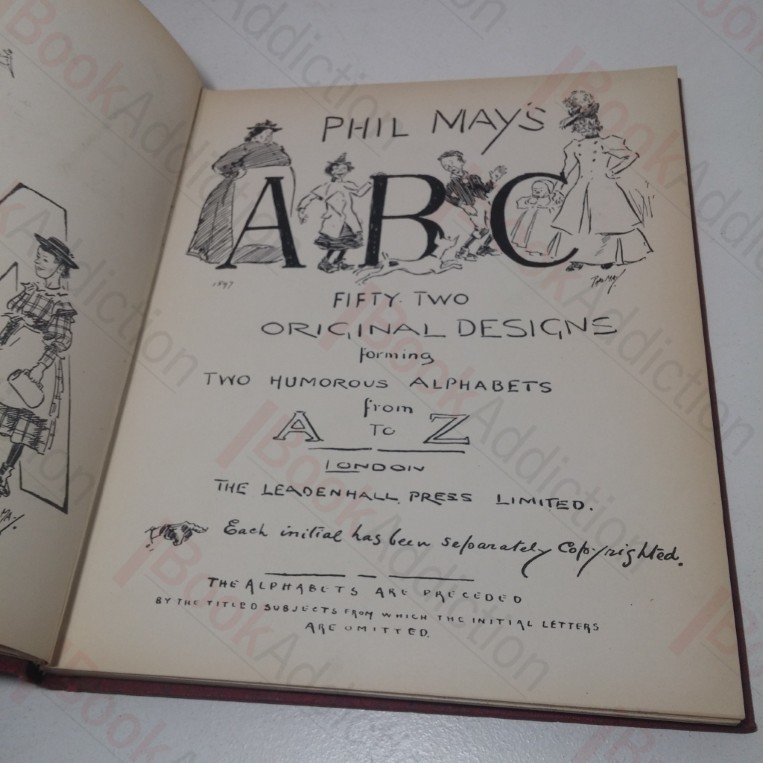 PHIL MAY'S
A B C
1897
PHIL MAY
FIFTY TWO
ORIGINAL DESIGNS
forming
TWO HUMOROUS ALPHABETS
from
A TO Z
LONDON
THE LEADENHALL PRESS LIMITED.
Each initial has been separately Copyrighted.
THE ALPHABETS ARE PRECEDED
BY THE TITLED SUBJECTS FROM WHICH THE INITIAL LETTERS
ARE OMITTED.
BookAddiction